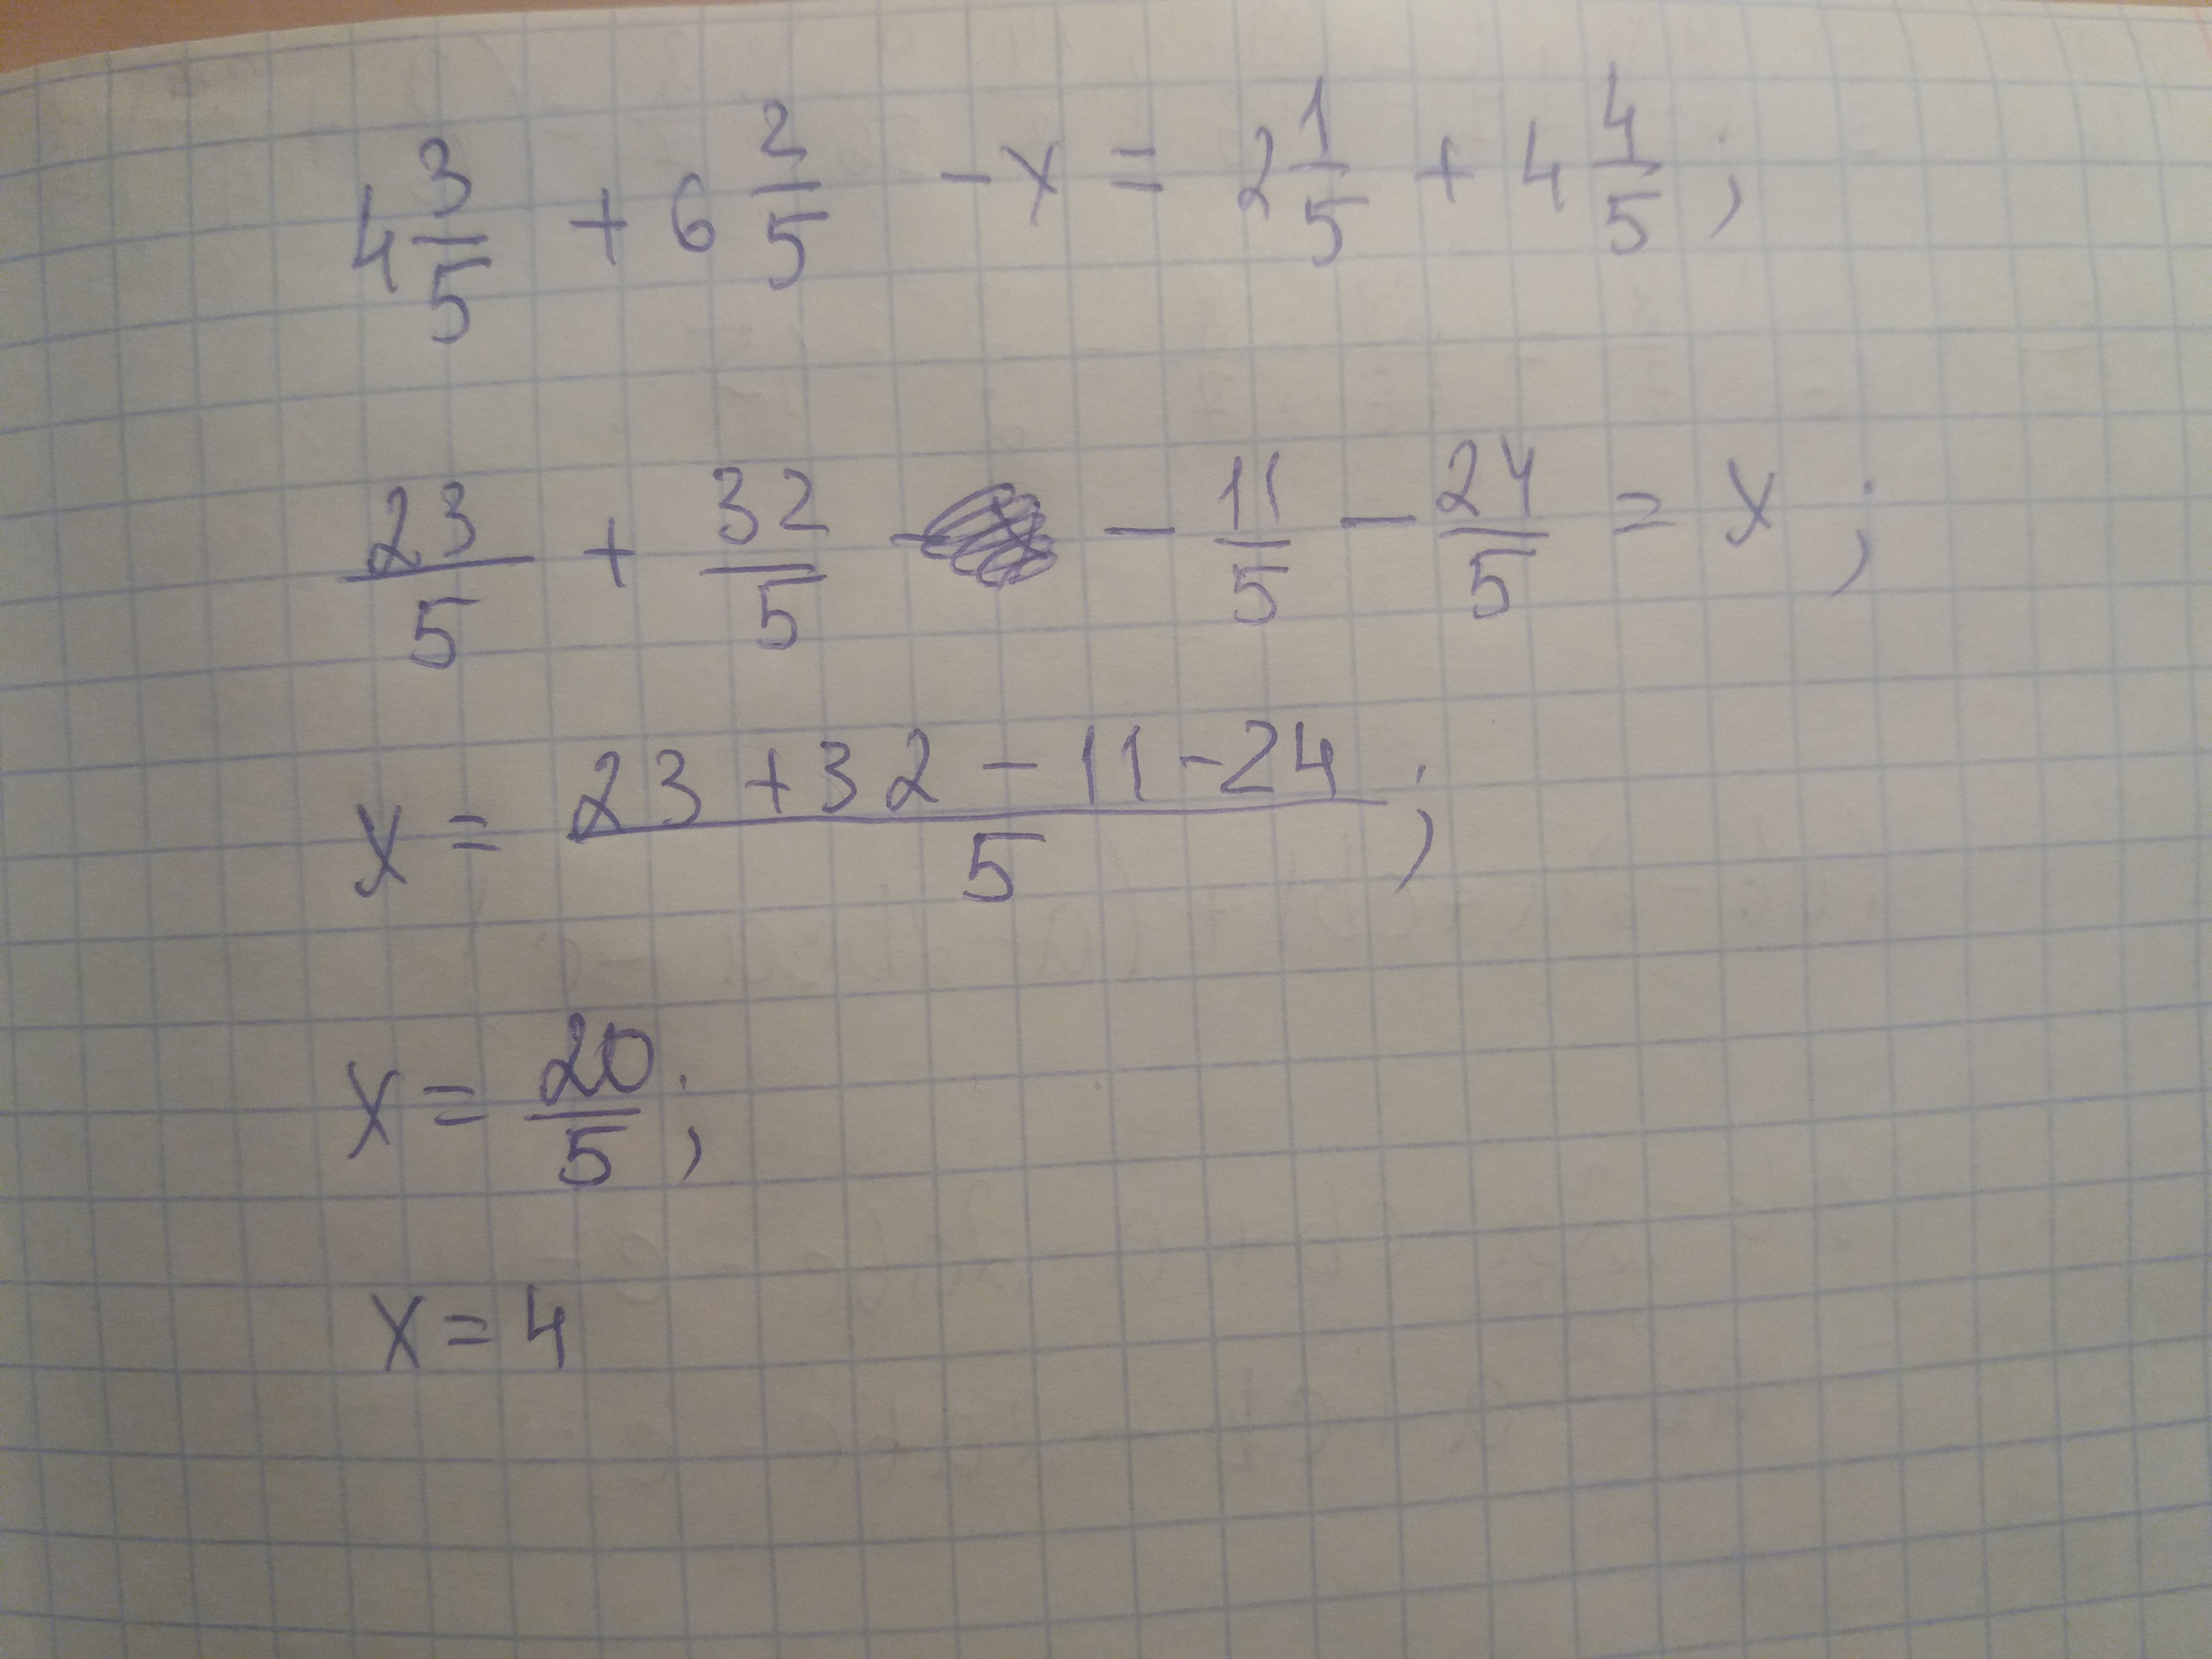 4 3/5 + 6 2/5 - x = 2 1/5 + 4 4/5 ;
23/5 + 32/5 - - 11/5 - 24/5 = x ;
x = (23 + 32 - 11 - 24)/5 ;
x = 20/5 ;
x = 4